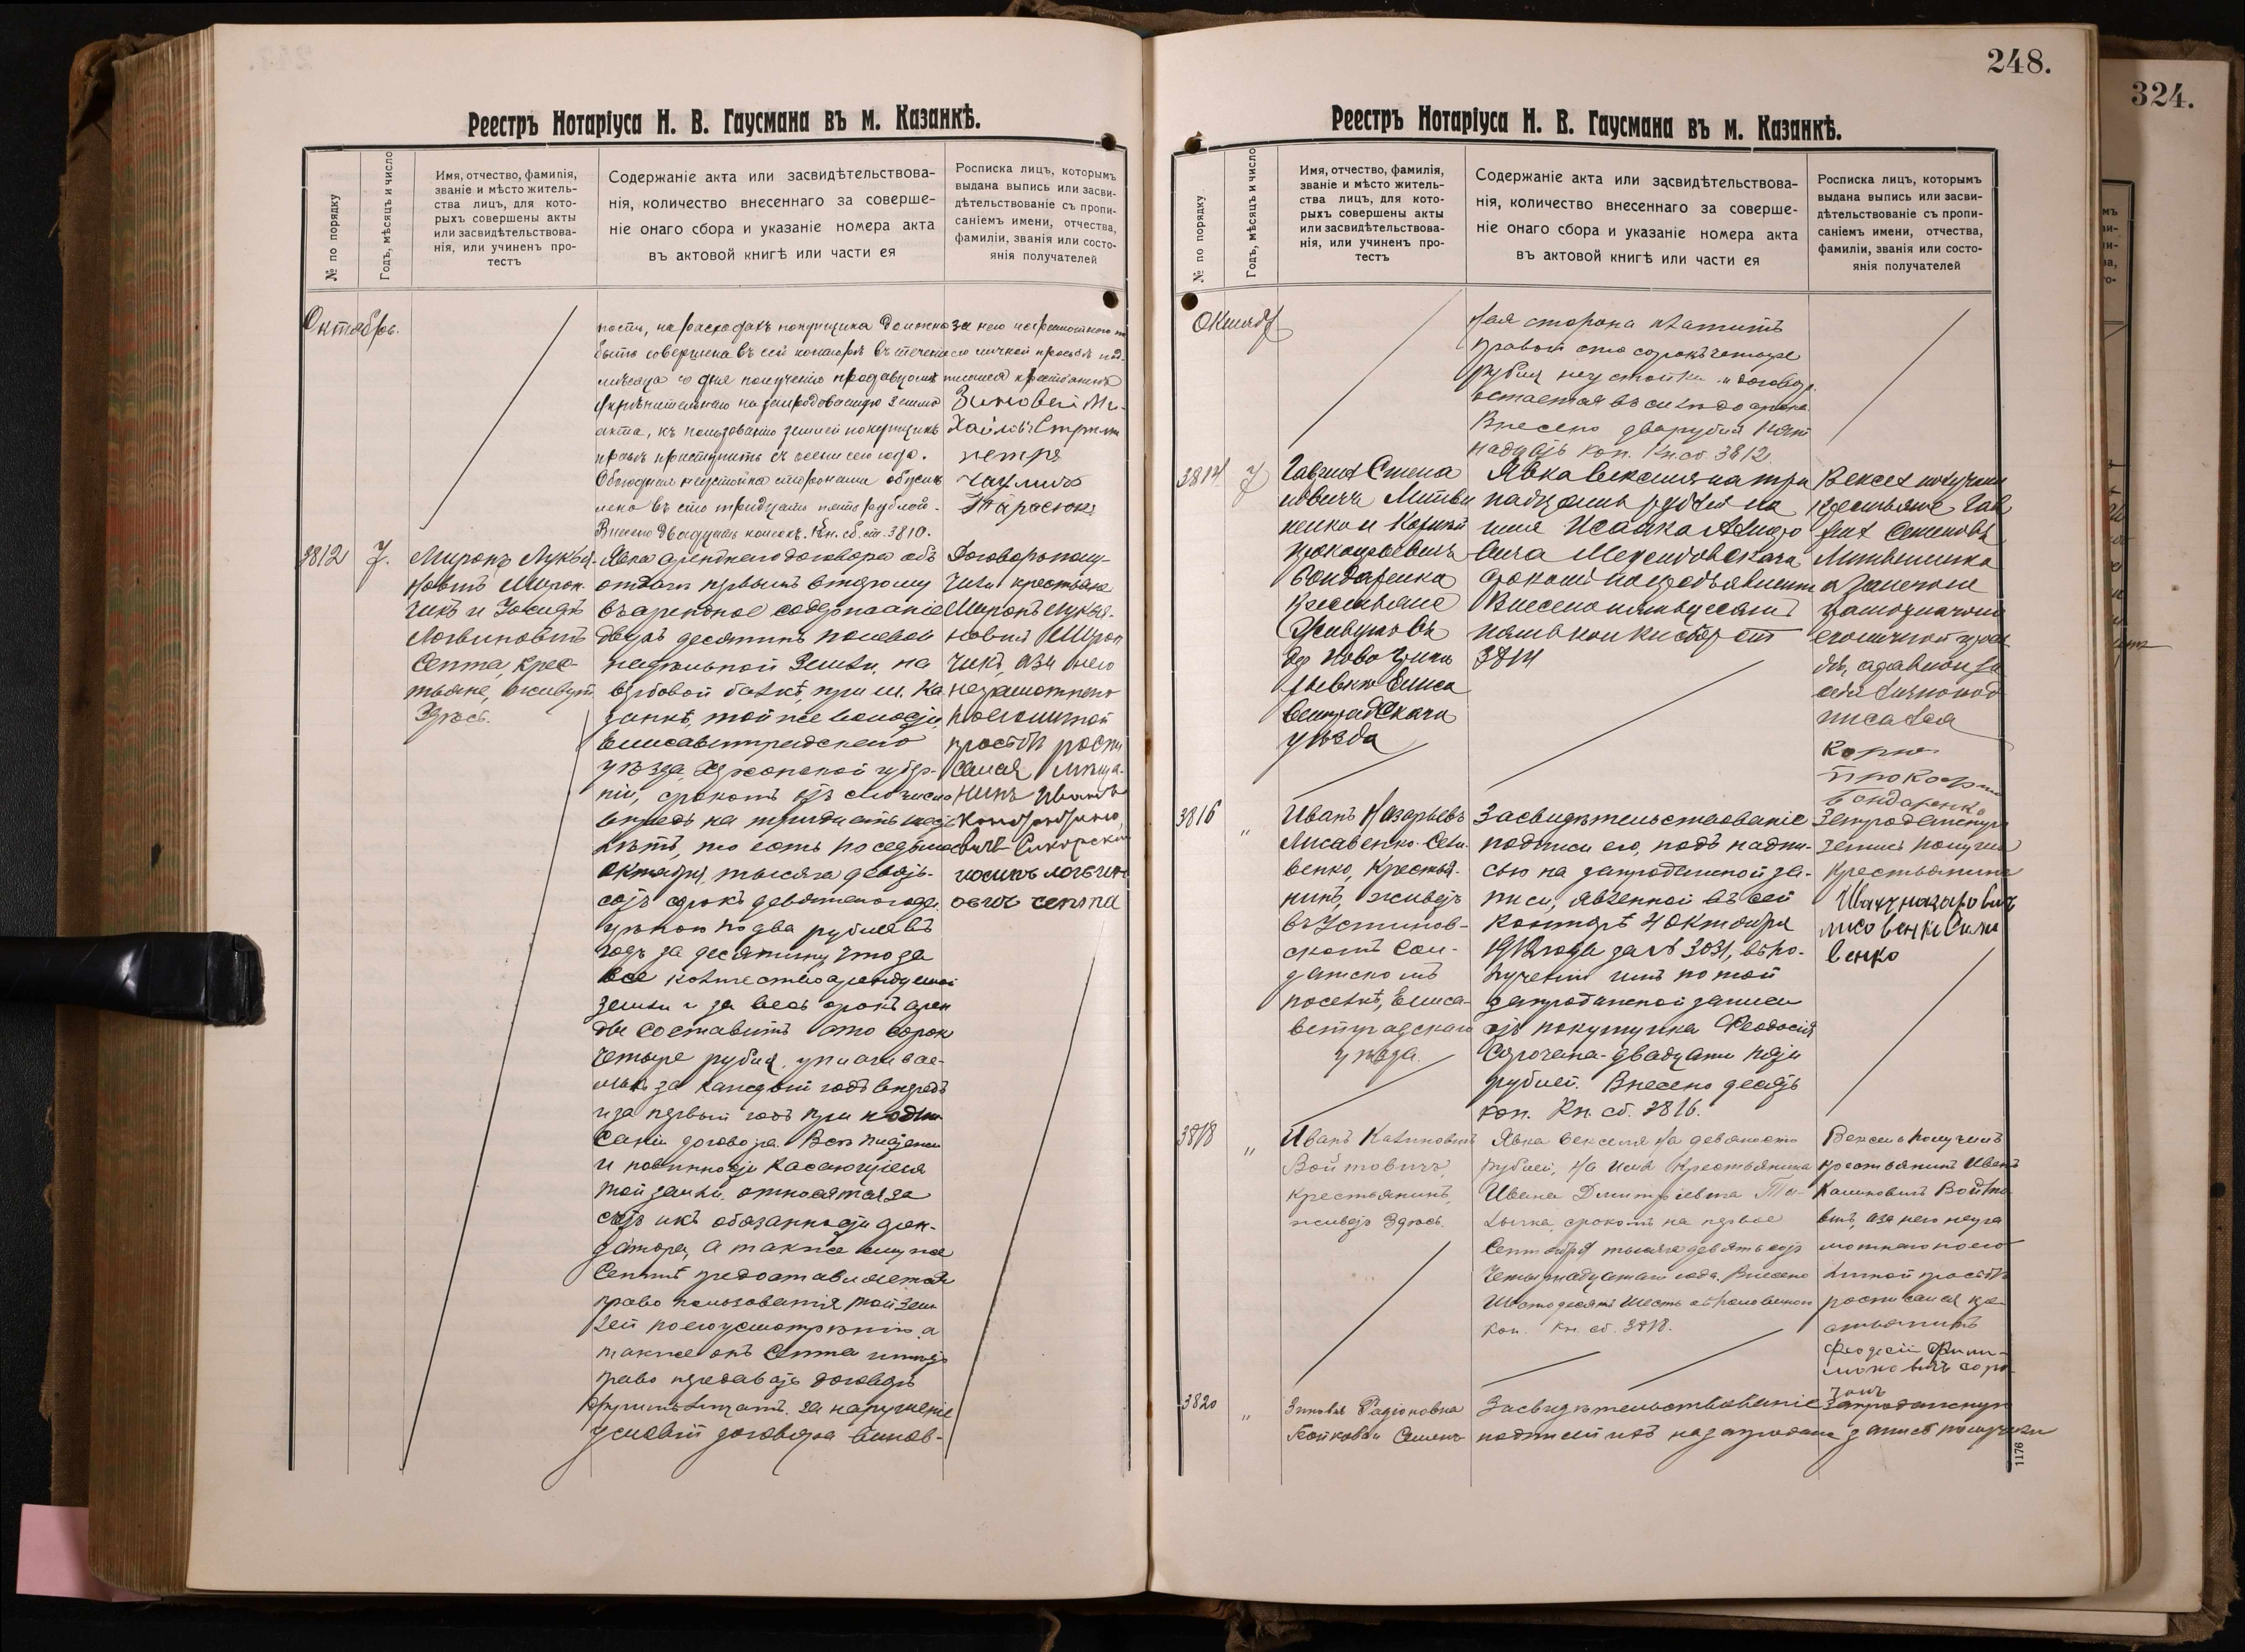 248.
324.
Реестръ Нотаріуса Н. В. Гаусмана въ м. Казанкѣ.
№ по порядку
Годъ, мѣсяцъ и число
Имя, отчество, фамилія,
званіе и мѣсто житель-
ства лицъ, для кото-
рыхъ совершены акты
или засвидѣтельствова-
нія, или учиненъ про-
тестъ
Содержаніе акта или засвидѣтельствова-
нія, количество внесеннаго за соверше-
ніе онаго сбора и указаніе номера акта
въ актовой книгѣ или части ея
Росписка лицъ, которымъ
выдана выпись или засви-
дѣтельствованіе съ пропи-
саніемъ имени, отчества,
фамиліи, званія или состо-
янія получателей
Октябрь.
ность, на расходахъ покупщика должна
быть совершена въ сей конторѣ въ теченіе
мѣсяца со дня полученія продавцомъ
укрѣпительнаго на запродаваемую землю
акта, къ пользованію землей покупщикъ
правъ приступить съ осени сего года.
Обоюдная неустойка сторонами обуслов
лена въ сто тридцать пять рублей.
Внесено двадцать копѣекъ. Кн. сб. ст. 3810.
за него неграмотнаго по
его личной просьбѣ под-
писался крестьянинъ
Зиновей Ми-
хайловъ
петръ
Тарасюкъ
3812
7.
Миронъ Лукья-
новичъ Мирон
чикъ и
Логвиновичъ
Септа, крес-
тьяне, живутъ
Здѣсь.
Явка аренднаго договора объ
отдачѣ первымъ второму
въ арендное содержаніе
двухъ десятинъ полевой
надѣльной земли, на
вербовой балкѣ, при м. Ка
занкѣ, той же волости,
Елисаветградскаго
уѣзда, Херсонской губер-
ніи, срокомъ отъ сего числа
впредь на тридцать шесть
лѣтъ, то есть по седьмое
Октября, тысяча девять-
сотъ сорокъ девятаго года.
цѣною по два рубля въ
годъ за десятину, что за
все количество арендуемой
земли и за весь срокъ арен
ды составитъ сто сорок
четыре рубля, уплачивае-
мыхъ за каждый годъ впередъ
и за первый годъ при подпи
саніи договора. Всѣ платежи
и повинности касающіеся
той земли, относятся за
счетъ и къ обязанности арен-
датора, а также ему же
Септѣ предоставляется
право пользованія той зем
лей по его усмотрѣнію, а
также онъ Септа имѣетъ
право передавать договоръ
другимъ лицамъ. За нарушеніе
условій договора винов-
Договоръ полу-
чили крестьяне
Миронъ Лукья-
новичъ Мирон
чикъ, а за него
неграмотнаго
по его личной
просьбѣ роспи
сался мѣща-
нинъ Иванъ
Кондратье
вичъ Сикорскій
септа
Реестръ Нотаріуса Н. В. Гаусмана въ м. Казанкѣ.
№ по порядку
Годъ, мѣсяцъ и число
Имя, отчество, фамилія,
званіе и мѣсто житель-
ства лицъ, для кото-
рыхъ совершены акты
или засвидѣтельствова-
нія, или учиненъ про-
тестъ
Содержаніе акта или засвидѣтельствова-
нія, количество внесеннаго за соверше-
ніе онаго сбора и указаніе номера акта
въ актовой книгѣ или части ея
Росписка лицъ, которымъ
выдана выпись или засви-
дѣтельствованіе съ пропи-
саніемъ имени, отчества,
фамиліи, званія или состо-
янія получателей
Октябр
ная сторона платитъ
правой сто сорокъ четыре
рубля неустойки и договоръ
остается въ силѣ до срока.
Внесено два рубля пят
надцать коп. Кн. сб. 3812.
3814
7
Гавріилъ Семе
новичъ Литви
ненко и Корній
Прокофьевичъ
Бондаренко
крестьяне
живутъ въ
дер. Ново
Елиса
ветградскаго
уѣзда
Явка векселя на три
надцать рублей на
имя Исаака
вича
срокомъ по предъявленіи
Внесено пятьдесятъ
пять коп. Кн. сбор. ст.
3814
Вексель получили
крестьяне Гав
ріилъ Семеновъ
Литвиненко
а за него не
грамотнаго по
его личной прось
бѣ, а равно и за
себя лично под
писался
Корній
Прокоф
Бондаренко
3816
„
Иванъ Назарьевъ
Лисавенко-Сели
венко, крестья-
нинъ, живетъ
въ Устинов-
скомъ Сол-
датскомъ
поселкѣ, Елиса-
ветградскаго
уѣзда.
Засвидѣтельствованіе
подписи его, подъ надпи-
сью на запроданной за-
писи, явленной въ сей
конторѣ 4 Октября
1912 года за № 3031, въ по-
лученіи имъ по той
запроданной записи
отъ покупщика Феодосія
Сорочана двадцати пяти
рублей. Внесено десять
коп. Кн. сб. 3816.
Запроданную
запись получил
крестьянинъ
Иванъ назарович
лисовенко Сили
венко
3818
„
Иванъ Калиновичъ
Войтовичъ,
крестьянинъ,
живетъ здѣсь.
Явка векселя на девяносто
рублей, на имя крестьянина
Ивана Дмитріевича
срокомъ на первое
Сентября тысяча девятьсотъ
четырнадцатаго года. Внесено
шестьдесятъ шесть съ половиной
коп. Кн. сб. 3818.
Вексель получилъ
крестьянинъ Иванъ
Калиновичъ Войто
вичъ, а за него негра
мотнаго по его
личной просьбѣ
росписался кре
стьянинъ
Феодосій Фили-
моновичъ соро
чанъ
3820
„
Зиновья Радіоновна
Семенъ
Засвидѣтельствованіе
подписей ихъ на запроданн
Запроданную
запись получили
1176